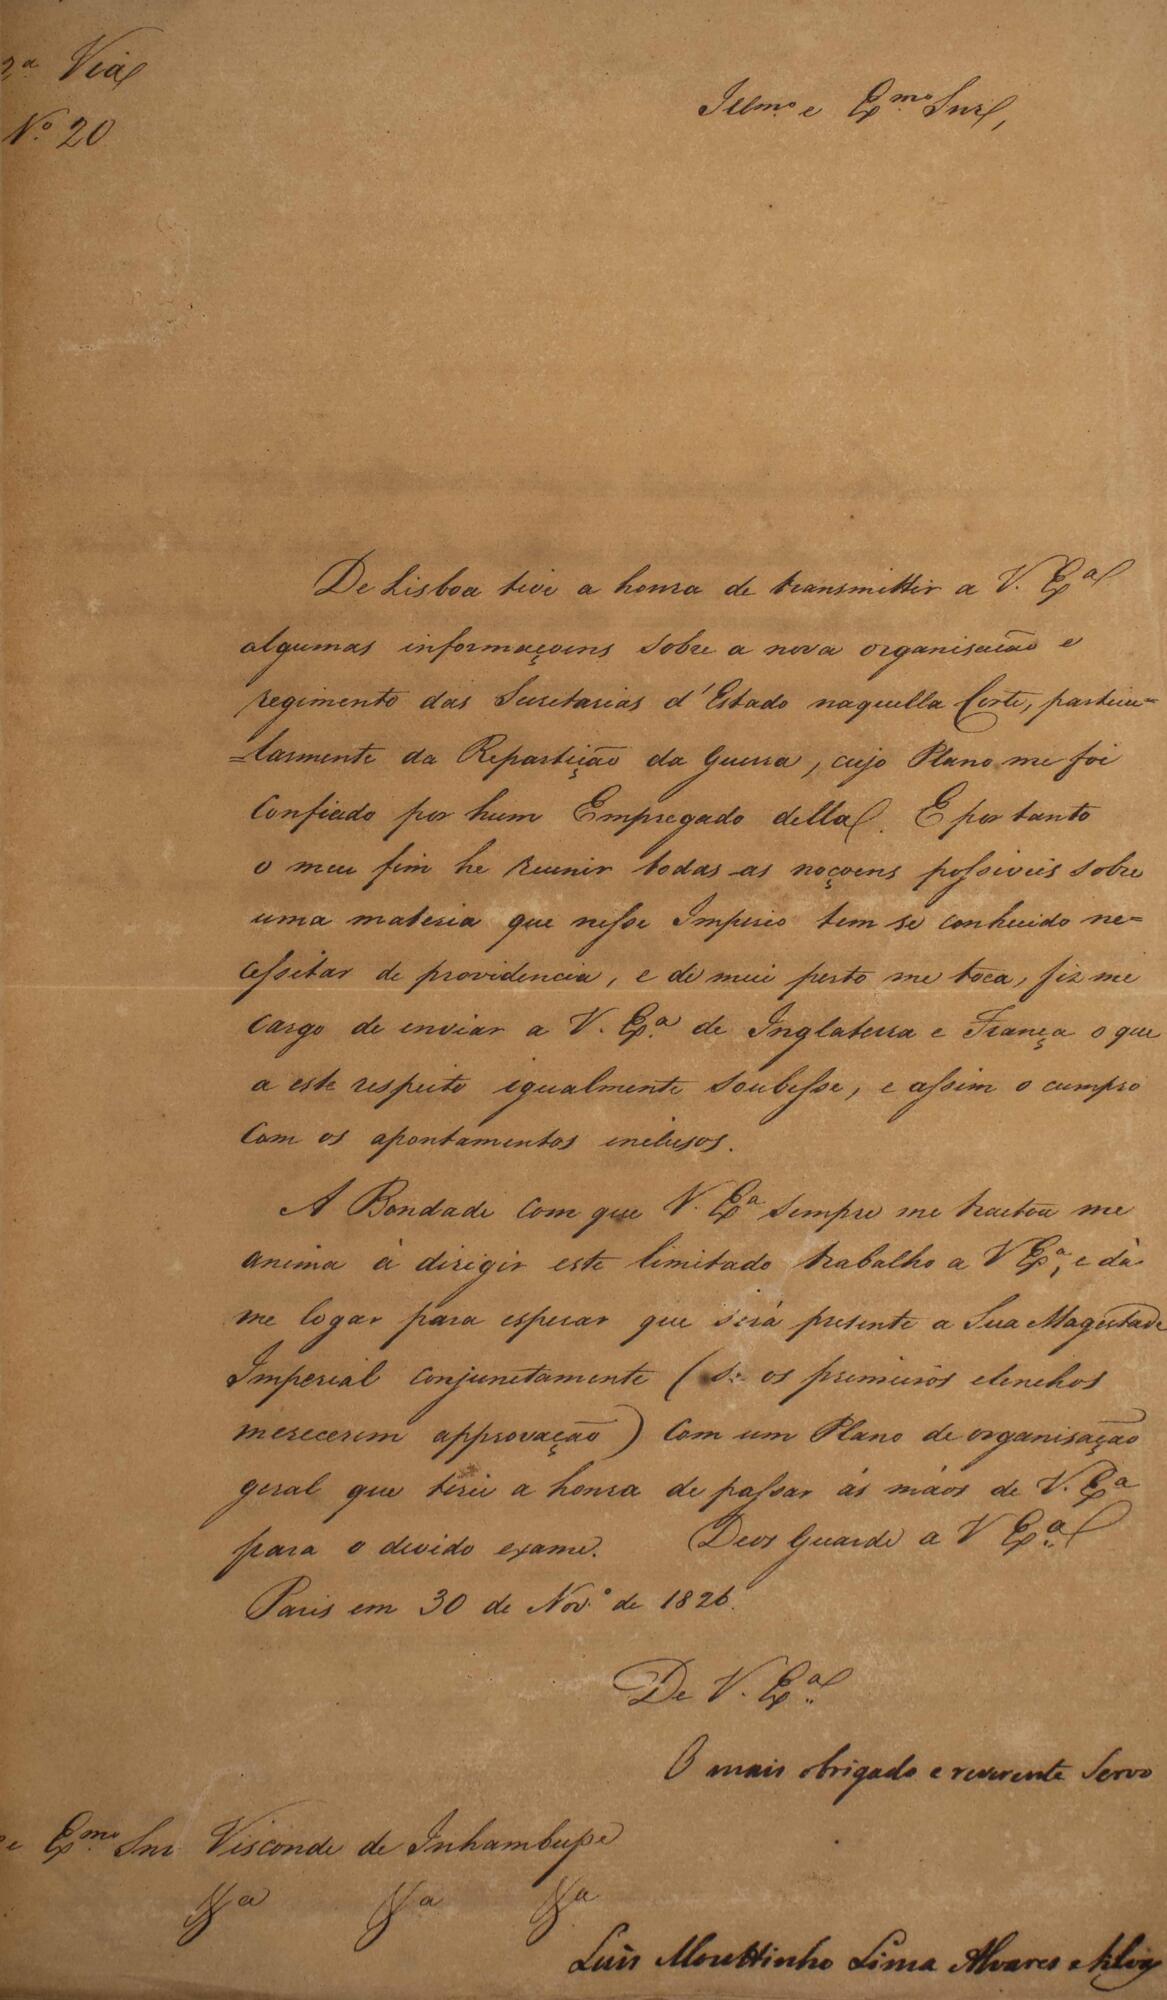 2.ª Via
N.º 20
Illm.º e Ex.mo Snr,
De Lisboa tive a honra de transmittir a V. Ex.ª
algumas informaçoens sobre a nova organisacão e
regimento das Secretarias d'Estado naquella Corte, particu=
=larmente da Repartição da Guerra, cujo Plano me foi
confiado por hum Empregado della. E por tanto
o meu fim he reunir todas as noçoens possiveis sobre
uma materia que nesse Imperio tem se conhecido ne=
cessitar de providencia, e de mui perto me toca, fiz me
cargo de enviar a V. Ex.ª de Inglaterra e França o que
a este respeito igualmente soubesse, e assim o cumpro
com os apontamentos inclusos.
A Bondade com que V. Ex.ª sempre me tractou me
anima à dirigir este limitado trabalho a V Ex.ª, e dá
me logar para esperar que será presente a Sua Magestade
Imperial conjunctamente (se os primeiros elenchos
merecerem approvação) com um Plano de organisação
geral que terei a honra de passar ás mãos de V. Ex.ª
para o devido exame. Deos Guarde a V Ex.ª
Paris em 30 de Nov.º de 1826.
De V. Ex.ª
O mais obrigado e reverente Servo
e Ex.mo Snr Visconde de Inhambupe
Luis Mouttinho Lima Alvares e Silva